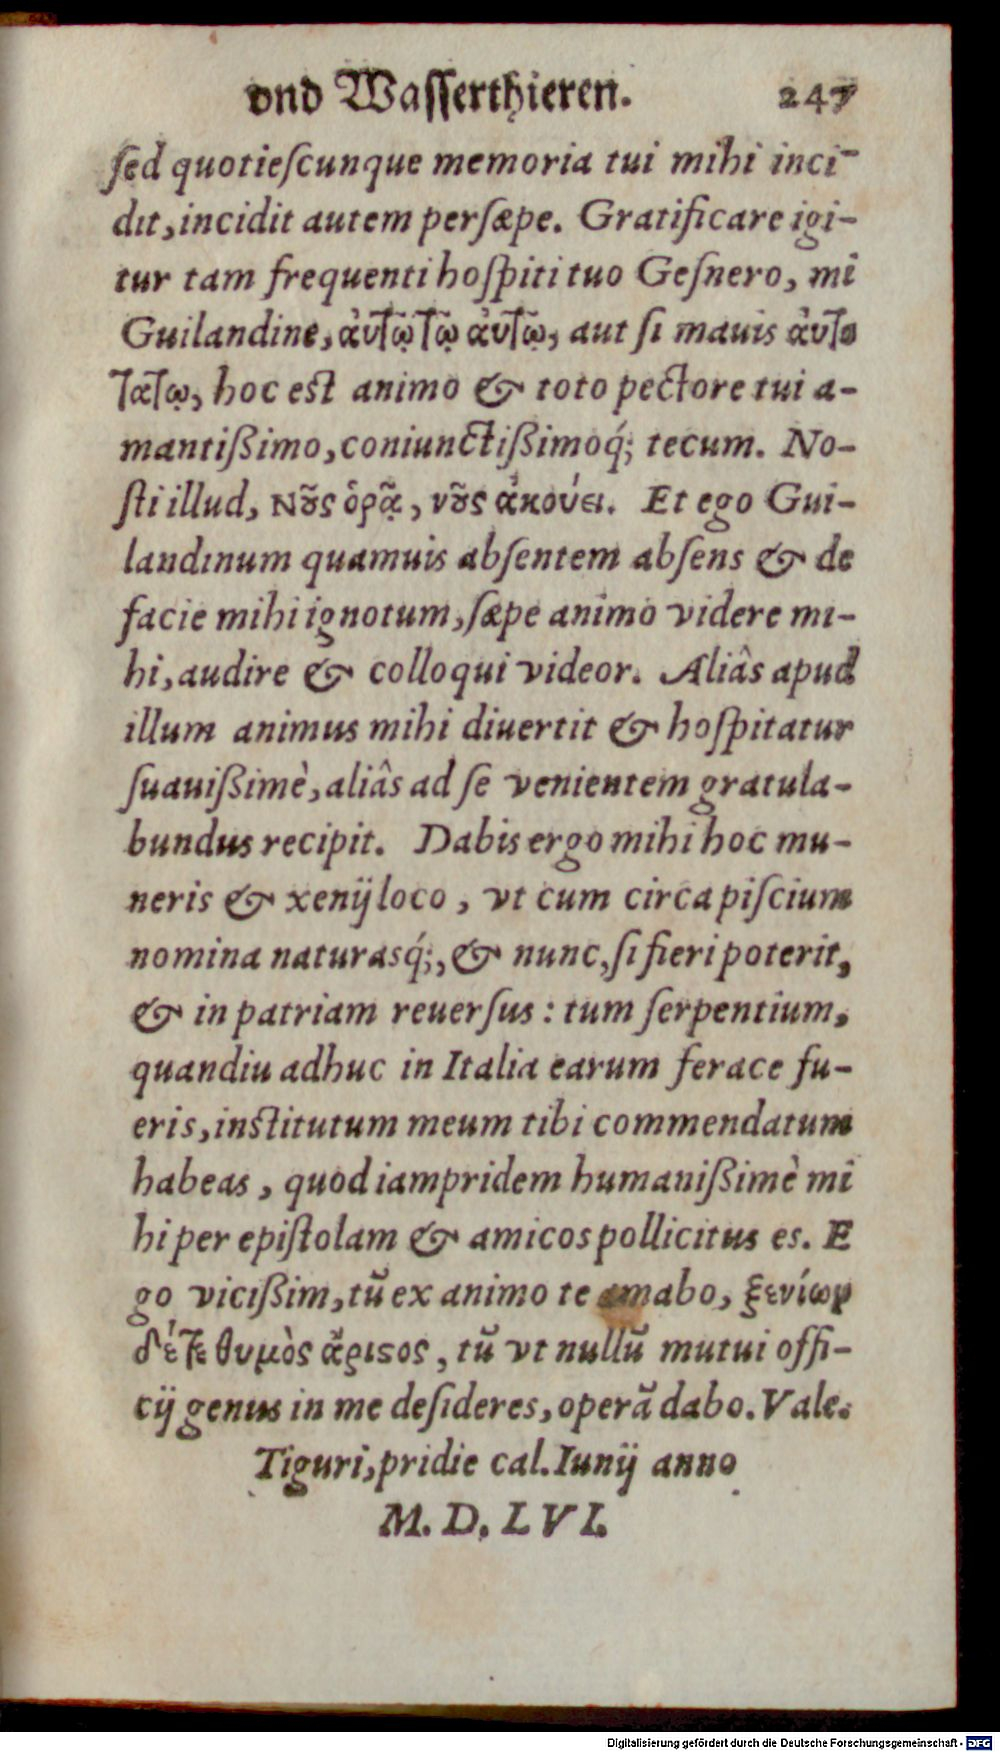 vnd Wasserthieren. 247
ſed quotieſcunque memoria tui mihi inci-
dit, incidit autem perſæpe. Gratificare igi-
tur tam frequenti hoſpiti tuo Geſnero, mi
Guilandine, ἀυτῷ τῷ ἀυτῷ, aut ſi mauis ἀυτο
τάτῳ, hoc est animo & toto pectore tui a-
mantißimo, coniunctißimoq́; tecum. No-
ſti illud, νοῦς ὁρᾷ, νοῦς ἀκούει. Et ego Gui-
landinum quamuis abſentem abſens & de
facie mihi ignotum, ſæpe animo videre mi-
hi, audire & colloqui videor. Aliâs apud
illum animus mihi diuertit & hoſpitatur
ſuauißimè, aliâs ad ſe venientem gratula-
bundus recipit. Dabis ergo mihi hoc mu-
neris & xenij loco, vt cum circa piſcium
nomina naturasq́;, & nunc, ſi fieri poterit,
& in patriam reuerſus: tum ſerpentium,
quandiu adhuc in Italia earum ferace fu-
eris, inſtitutum meum tibi commendatum
habeas, quod iampridem humanißimè mi
hi per epiſtolam & amicos pollicitus es. E
go vicißim, tũ ex animo te amabo, ξενίων
δέ τε θυμὸς ἄριςος, tũ vt nullũ mutui offi-
cij genus in me deſideres, operã dabo. Vale.
Tiguri, pridie cal. Iunij anno
M. D. LVI.
Digitalisierung gefördert durch die Deutsche Forschungsgemeinschaft - DFG